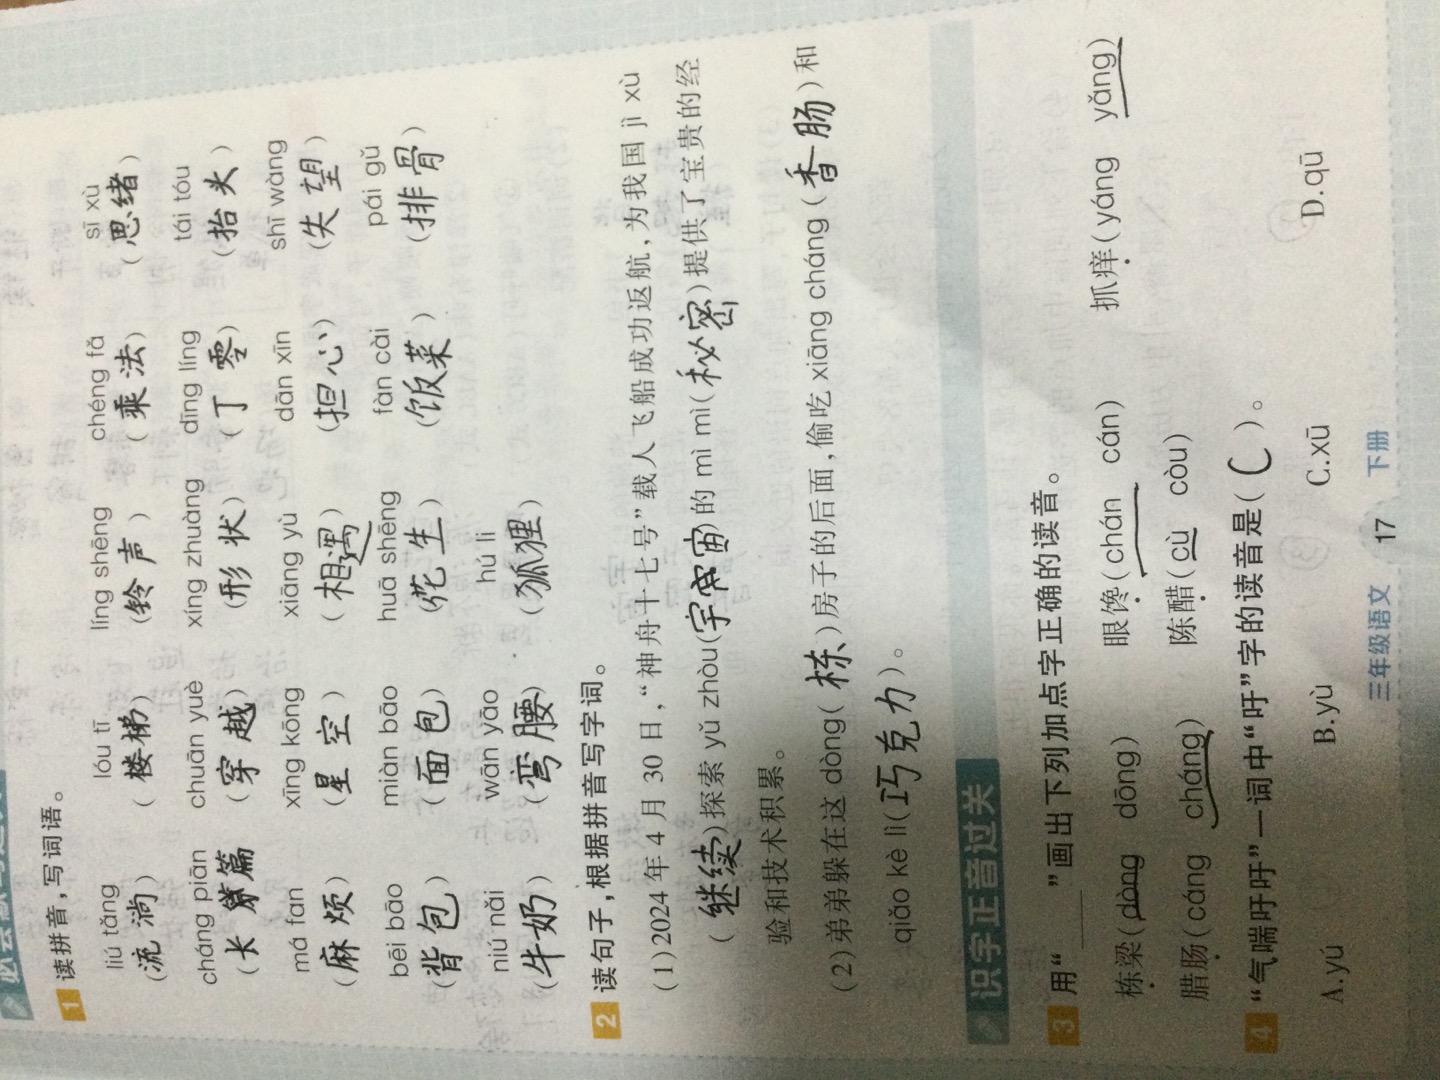 1 读拼音,写词语。
liú tǎng lóu tī líng shēng chéng fǎ sī xù
(流淌) (楼梯) (铃声) (乘法) (思绪)
cháng piān chuān yuè xíng zhuàng dīng líng tái tóu
(长篇) (穿越) (形状) (丁零) (抬头)
má fan xīng kōng xiāng yù dān xīn shī wàng
(麻烦) (星空) (相遇) (担心) (失望)
bēi bāo miàn bāo huā shēng fàn cài pái gǔ
(背包) (面包) (花生) (饭菜) (排骨)
niú nǎi wān yāo hú li
(牛奶) (弯腰) (狐狸)
2 读句子,根据拼音写字词。
(1)2024年4月30日,“神舟十七号”载人飞船成功返航,为我国 jì xù
(继续)探索 yǔ zhòu(宇宙)的 mì mì(秘密)提供了宝贵的经
验和技术积累。
(2)弟弟躲在这 dòng(栋)房子的后面,偷吃 xiāng cháng(香肠)和
qiǎo kè lì(巧克力)。
识字正音过关
3 用“____”画出下列加点字正确的读音。
栋梁(dòng dōng) 眼馋(chán cán) 抓痒(yáng yǎng)
腊肠(cáng cháng) 陈醋(cù còu)
4 “气喘吁吁”一词中“吁”字的读音是(C)。
A.yú B.yù C.xū D.qū
三年级语文 17 下册